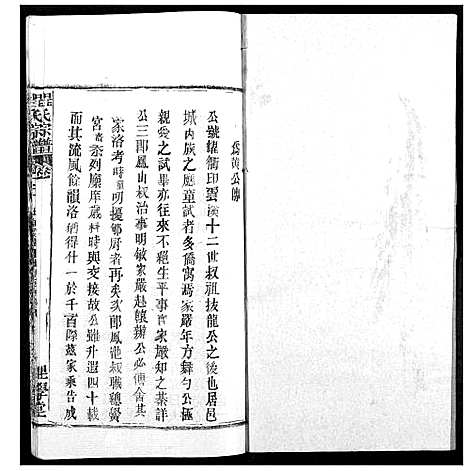 為黃公傳
公號耀衢印雲漢十二世叔祖技龍公之次也居邑
城內族之應童試者多僑寓焉家嚴年方舞勺公極
親愛之試畢亦來不絕生平事實家嚴知之綦詳
公三郎鳳山叔治事明敏家嚴赴鎮辦公必傳食其
家洛考時童叨擾郇廚者再矣次郎鳳池叔職聰黌
宮忝列廩庠歲科時與交接故公雖升遐四十載
而其流風餘韻洛猶得什一於千百際茲家乘告成
瞿氏宗譜
理學堂